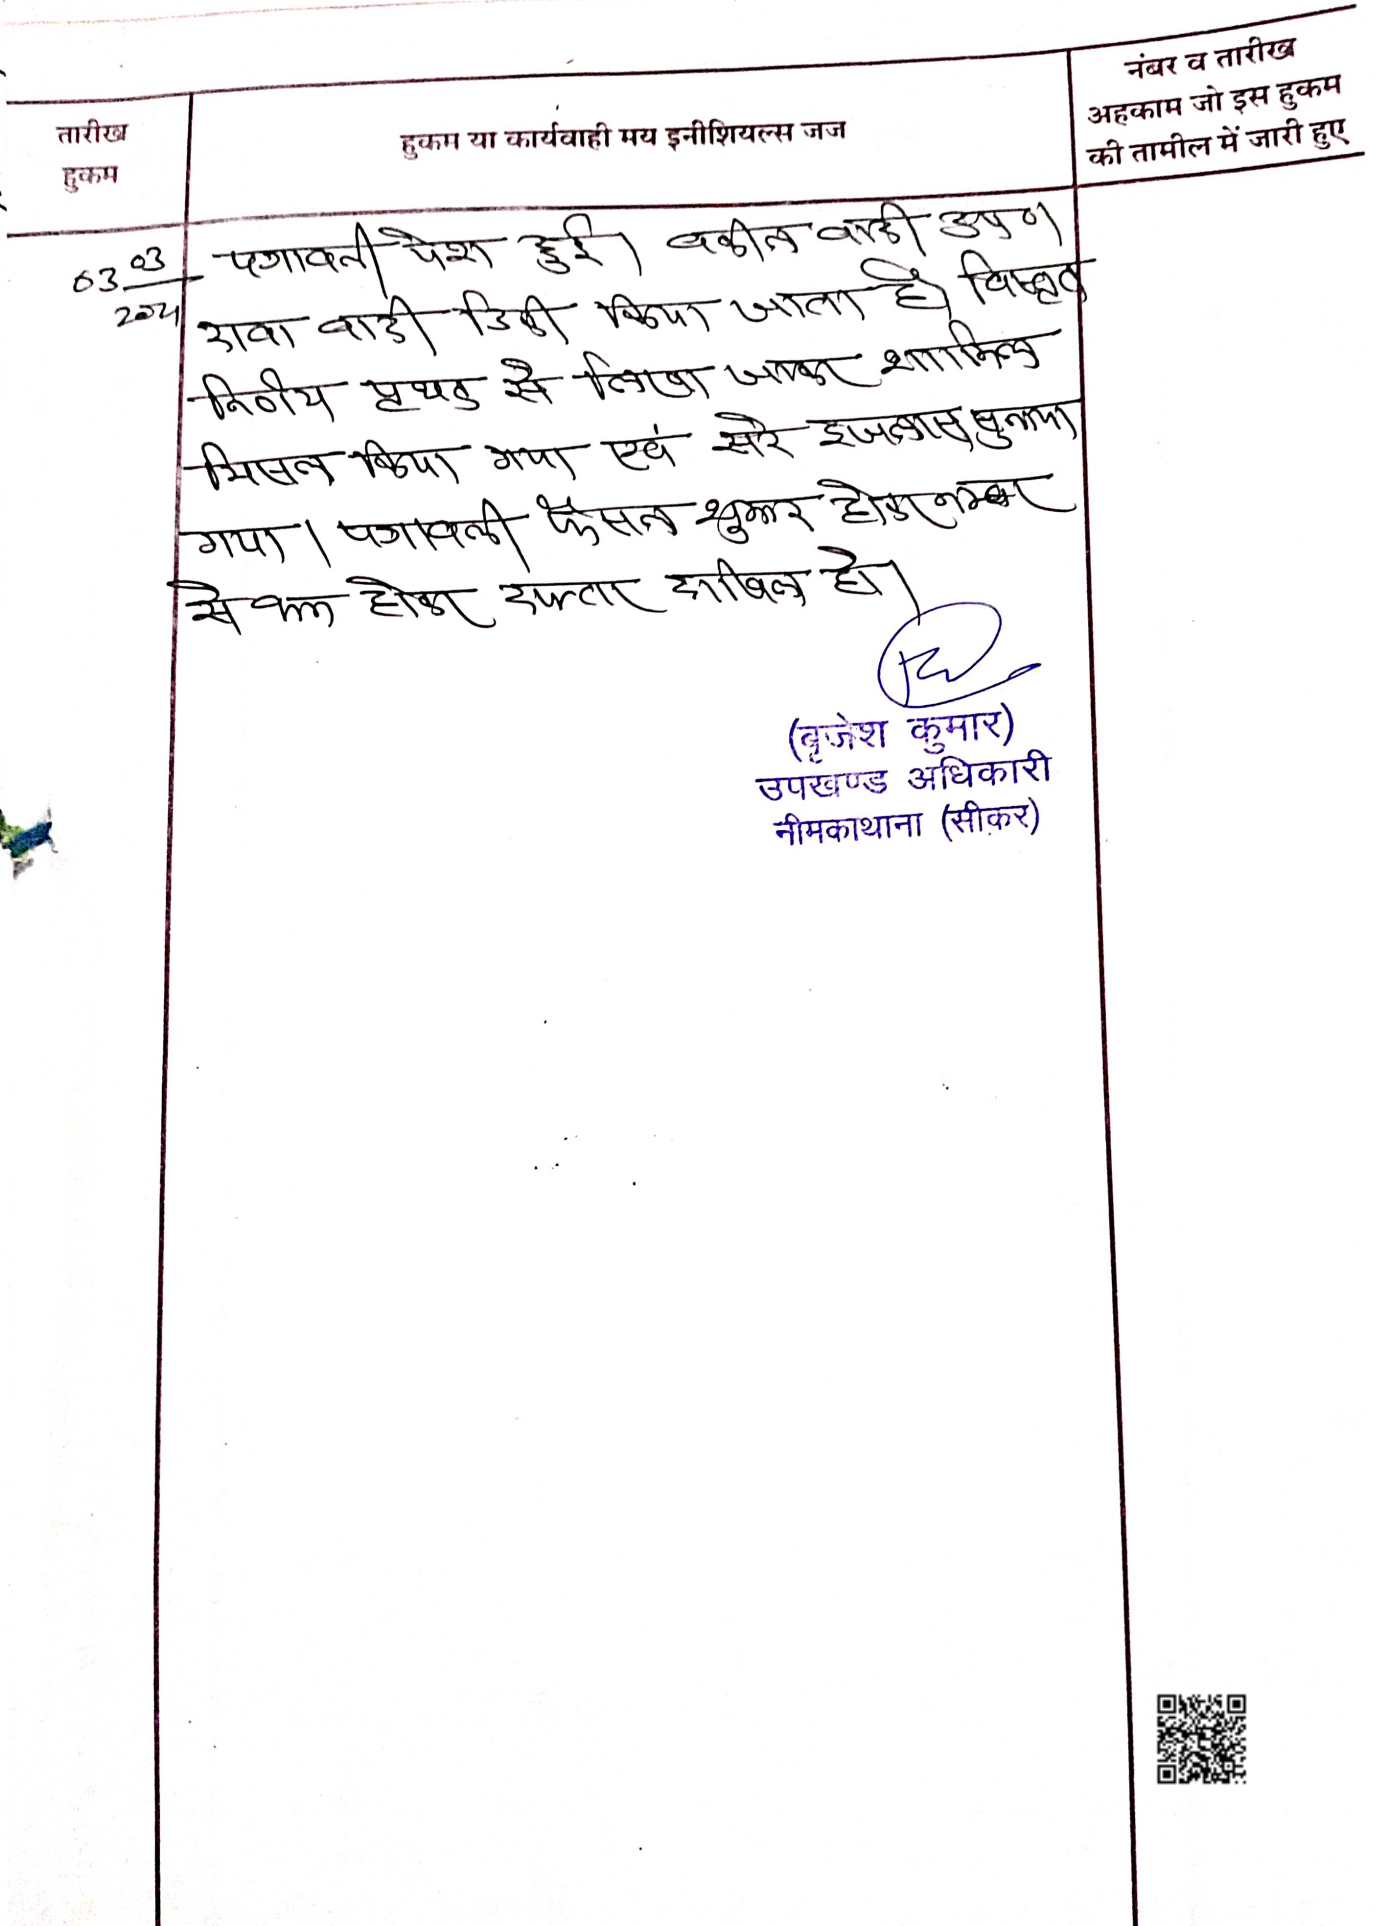 तारीख
हुकम
हुकम या कार्यवाही मय इनीशियल्स जज
नंबर व तारीख
अहकाम जो इस हुकम
की तामील में जारी हुए
03.03
पत्रावली पेश हुई। वकील वादी उप०।
दावा वादी डिक्री किया जाता है। विस्तृत
निर्णय पृथक से लिखा जाकर शामिल
मिसल किया गया एवं सरे इजलास सुनाया
गया। पत्रावली फैसल शुमार होकर नम्बर
से कम होकर दफ्तर दाखिल हो।
(बृजेश कुमार)
उपखण्ड अधिकारी
नीमकाथाना (सीकर)